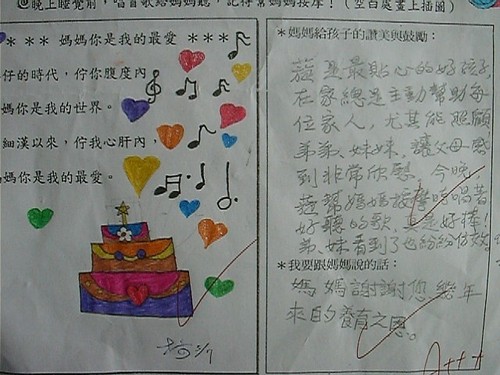 @晚上睡覺前，唱首歌給媽媽聽，記得幫媽媽按摩！（空白處畫上插圖）
＊＊＊ 媽媽你是我的最愛 ＊＊＊
仔的時代，佇你腹度內
媽你是我的世界。
細漢以來，佇我心肝內，
媽你是我的最愛。
＊媽媽給孩子的讚美與鼓勵：
是最貼心的好孩子
在家總是主動幫助每
位家人，尤其能照顧
弟弟、妹妹，讓父母感
到非常欣慰。今晚
幫媽媽按摩時唱著
好聽的歌，真是好棒！
弟、妹看到了也紛紛仿效。
＊我要跟媽媽說的話：
媽媽謝謝您幾年
來的養育之恩。
A+++